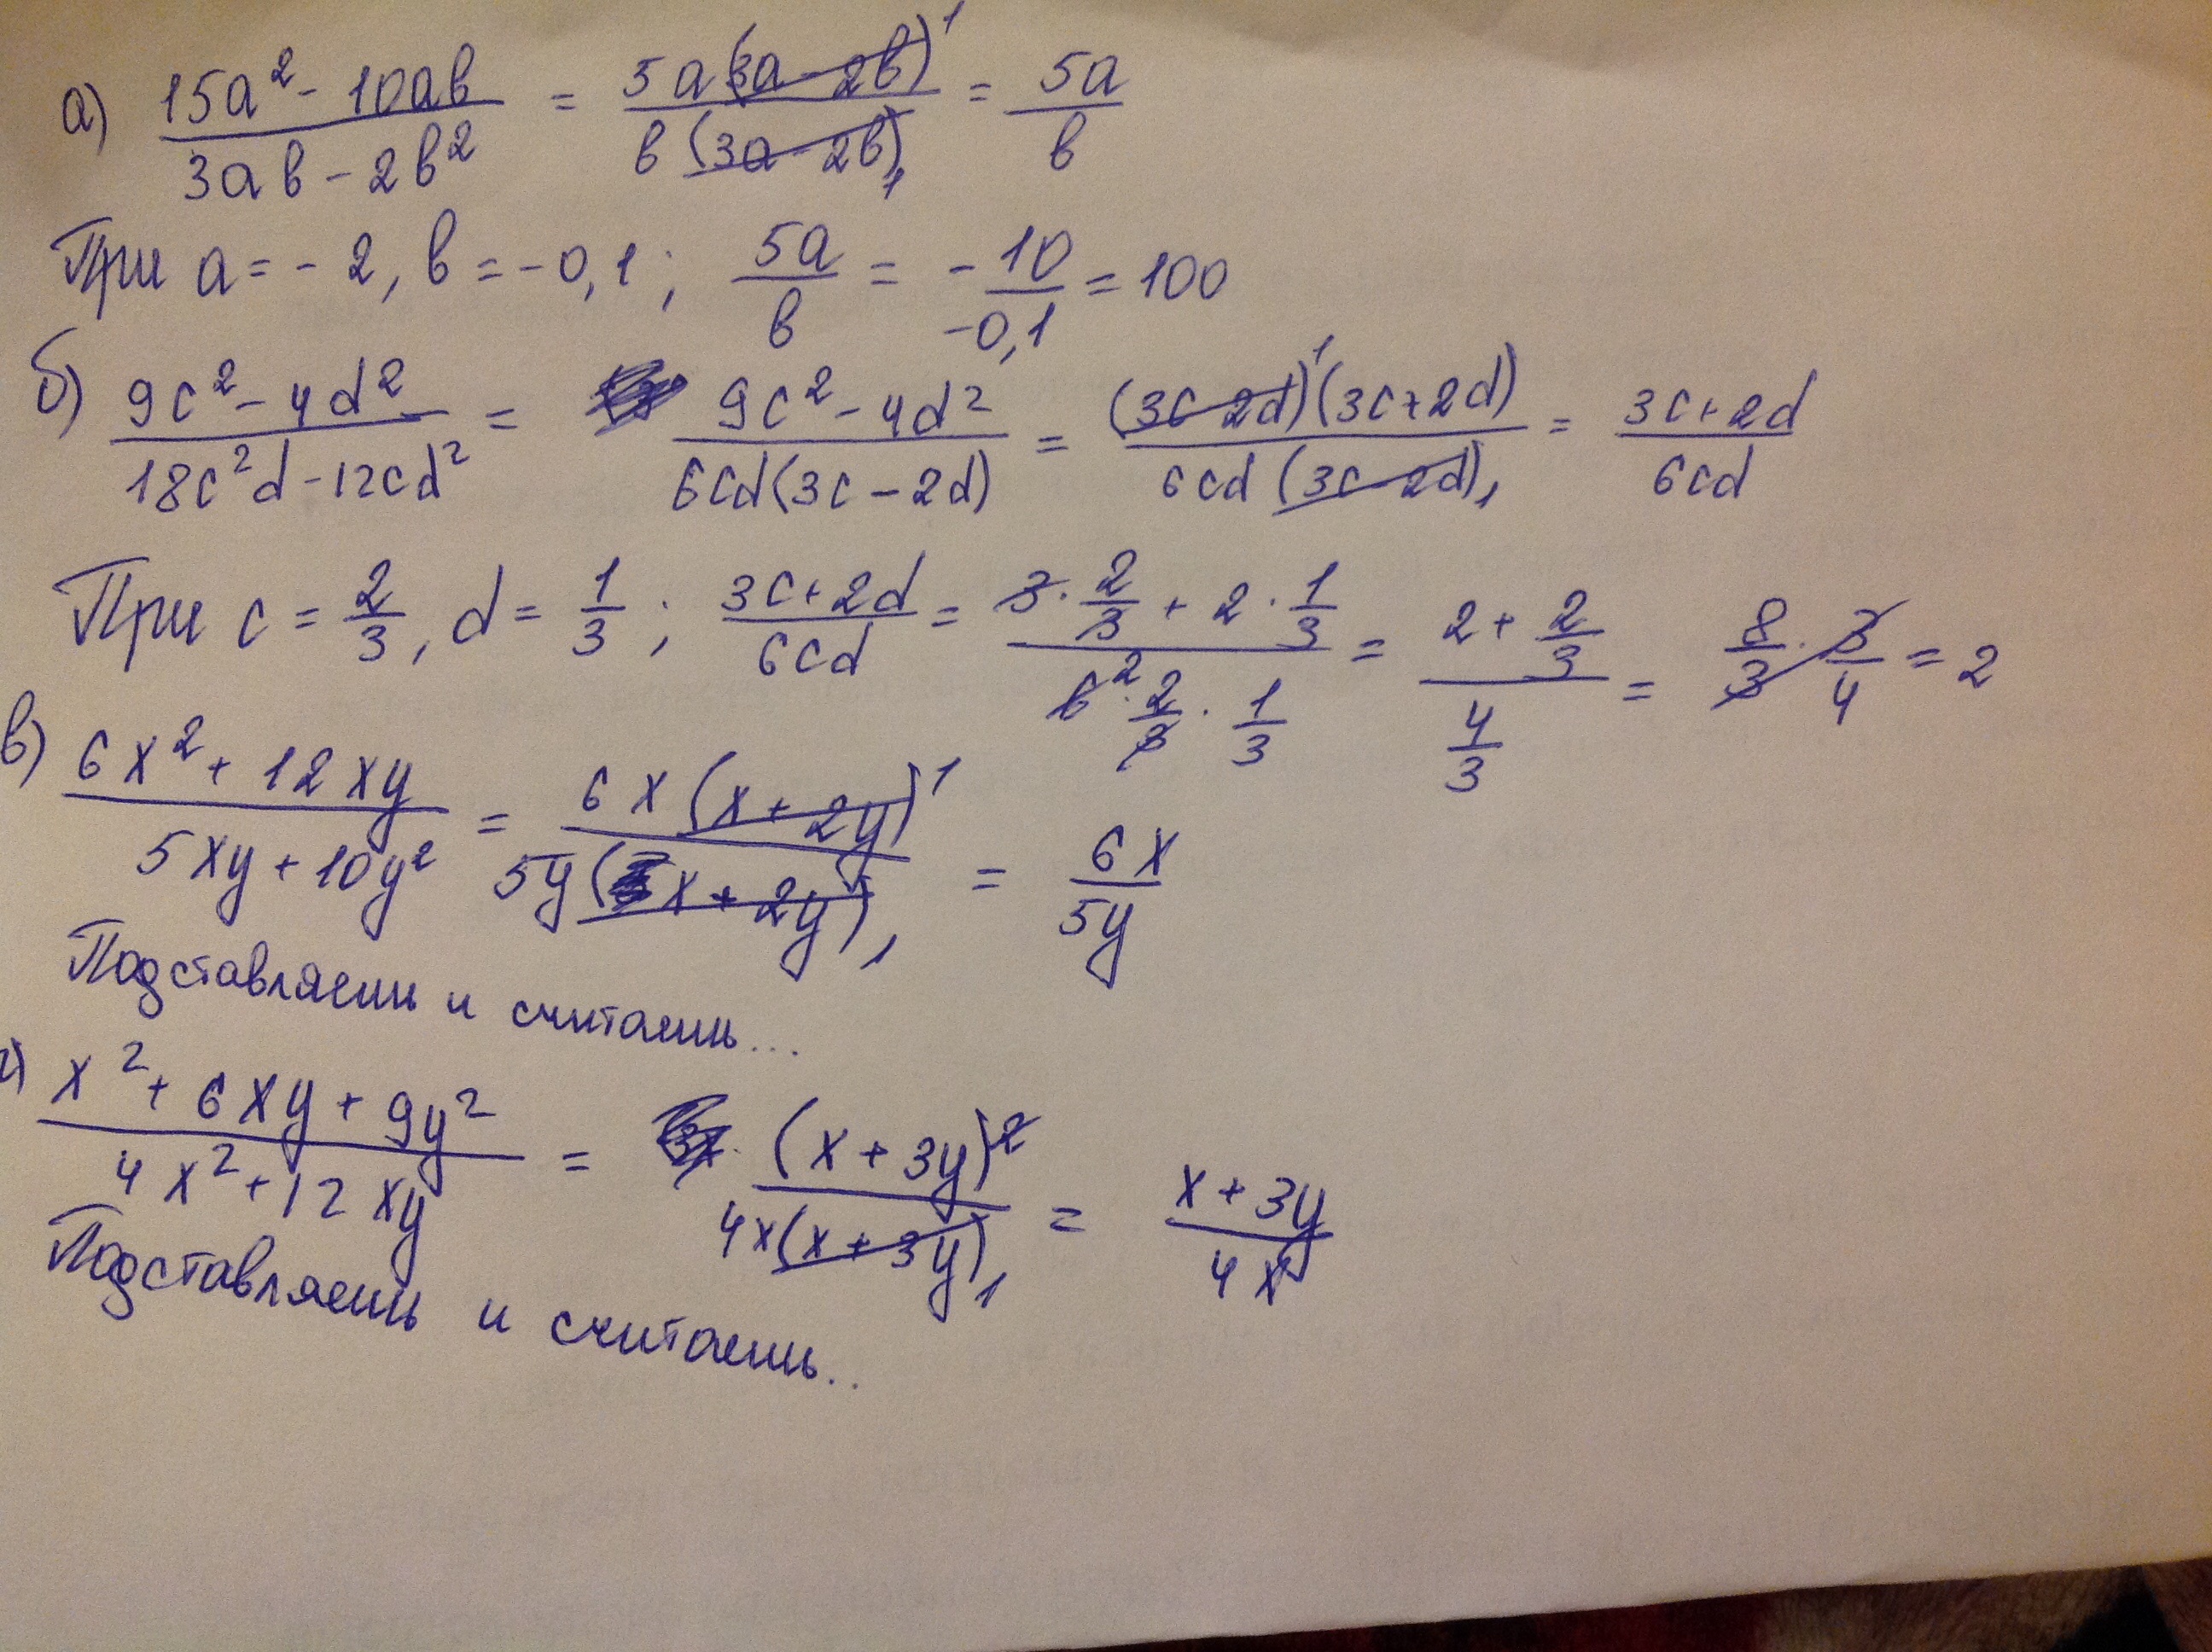 а) (15a² - 10ab)/(3ab - 2b²) = (5a(3a - 2b)¹)/(b(3a - 2b)₁) = 5a/b
При a = -2, b = -0,1; 5a/b = -10/-0,1 = 100
б) (9c² - 4d²)/(18c²d - 12cd²) = (9c² - 4d²)/(6cd(3c - 2d)) = ((3c - 2d)¹(3c + 2d))/(6cd(3c - 2d)₁) = (3c + 2d)/(6cd)
При c = 2/3, d = 1/3; (3c + 2d)/(6cd) = (3 · 2/3 + 2 · 1/3)/(6² · 2/3 · 1/3) = (2 + 2/3)/(4/3) = 8/3 · 3/4 = 2
в) (6x² + 12xy)/(5xy + 10y²) = (6x(x + 2y)¹)/(5y(x + 2y)₁) = 6x/5y
Подставляешь и считаешь...
г) (x² + 6xy + 9y²)/(4x² + 12xy) = (x + 3y)²/(4x(x + 3y)₁) = (x + 3y)/4x
Подставляешь и считаешь..